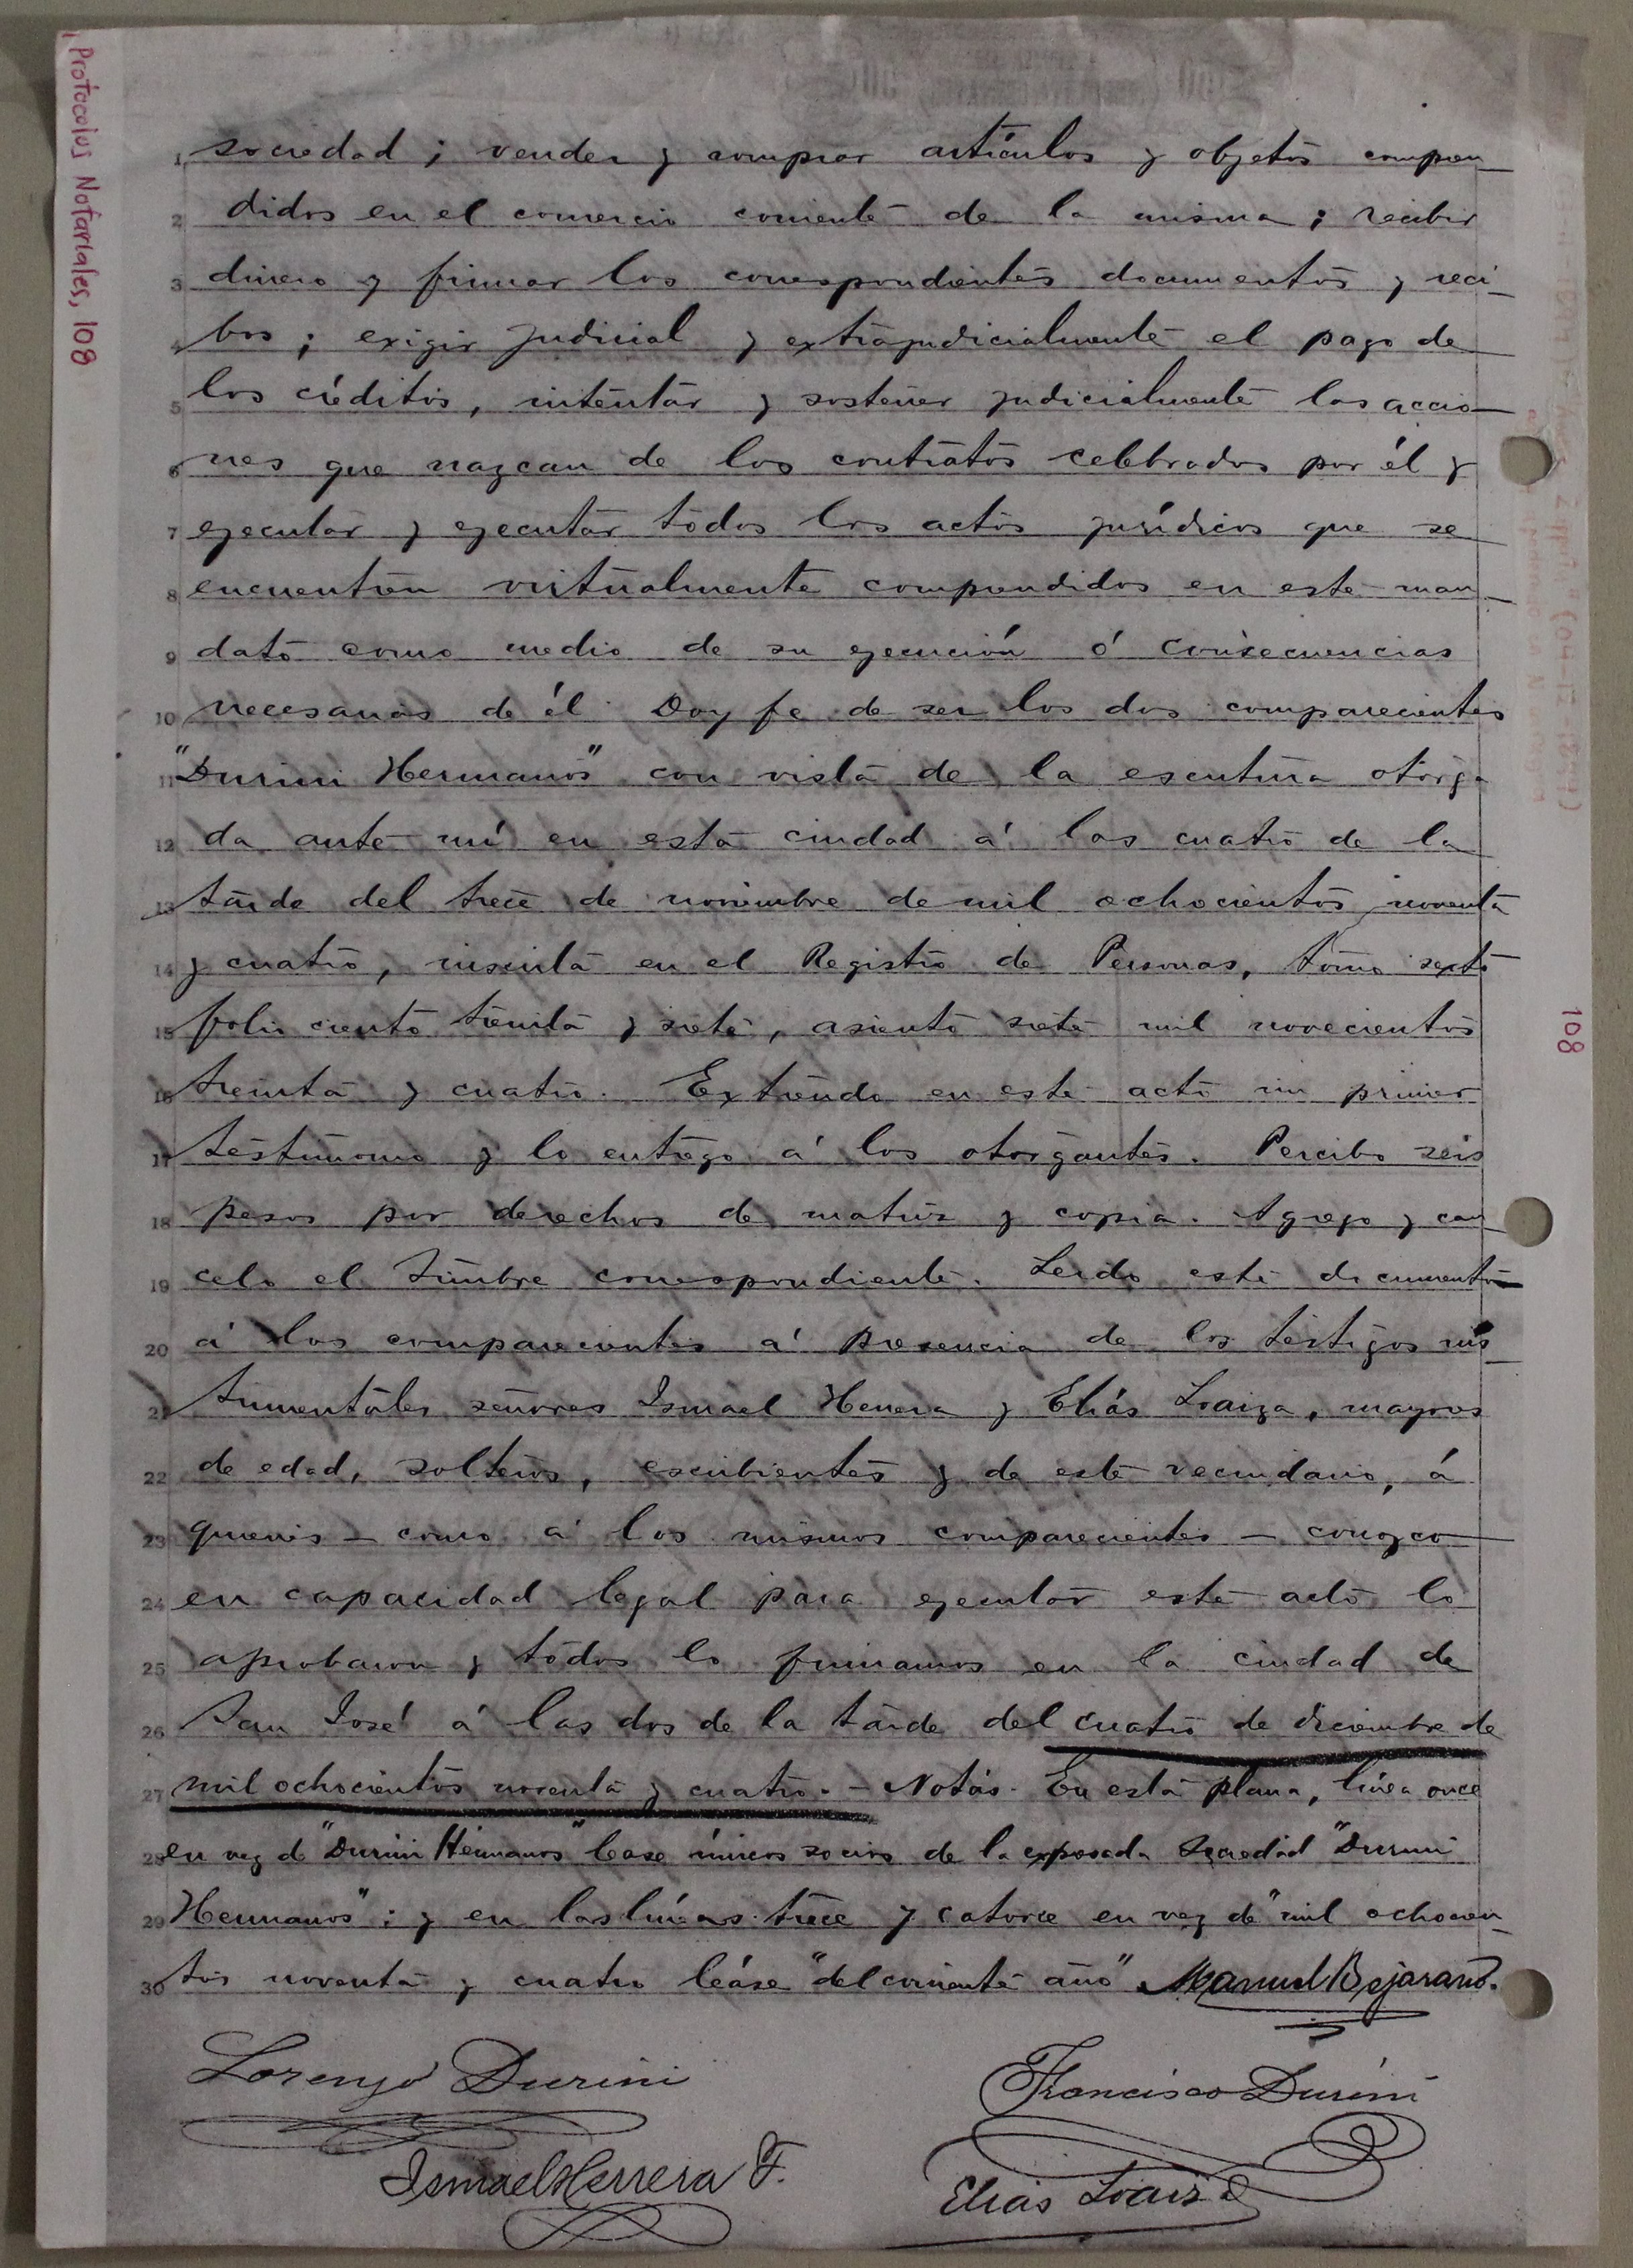 Protocolos Notariales, 108
1 sociedad; vender y comprar artículos y objetos compren
2 didos en el comercio corriente de la misma; recibir
3 dinero y firmar los correspondientes documentos y reci-
4 bos; exigir judicial y extrajudicialmente el pago de
5 los créditos, intentar y sostener judicialmente las accio
6 nes que nazcan de los contratos celebrados por él y
7 ejecutar y ejecutar todos los actos jurídicos que se
8 encuentren virtualmente comprendidos en este man
9 dato como medio de su ejecución ó consecuencias
10 necesarias de él. Doy fe de ser los dos comparecientes
11 "Durini Hermanos" con vista de la escritura otorga
12 da ante mí en esta ciudad á las cuatro de la
13 tarde del trece de noviembre de mil ochocientos noventa
14 y cuatro, inscrita en el Registro de Personas, tomo sexto
15 folio ciento treinta y siete, asiento siete mil novecientos
16 treinta y cuatro. Extiendo en este acto un primer
17 testimonio y lo entrego á los otorgantes. Percibo seis
18 pesos por derechos de matriz y copia. Agrego y can
19 celo el timbre correspondiente. Leido este documento
20 á los comparecientes á presencia de los testigos ins
21 trumentales señores Ismael Herrera y Elías Loaiza, mayores
22 de edad, solteros, escribientes y de este vecindario, á
23 quienes - como á los mismos comparecientes - conozco
24 en capacidad legal para ejecutar este acto lo
25 aprobaron y todos lo firmamos en la ciudad de
26 San José á las dos de la tarde del cuatro de diciembre de
27 mil ochocientos noventa y cuatro. - Notas. En esta plana, línea once
28 en vez de "Durini Hermanos" lease únicos socios de la expresada Sociedad "Durini
29 Hermanos"; y en las líneas trece y catorce en vez de "mil ochocien
30 tos noventa y cuatro léase "del corriente año" Manuel Bejarano.
Lorenzo Durini Francisco Durini
Ismael Herrera F. Elías Loaiza
108